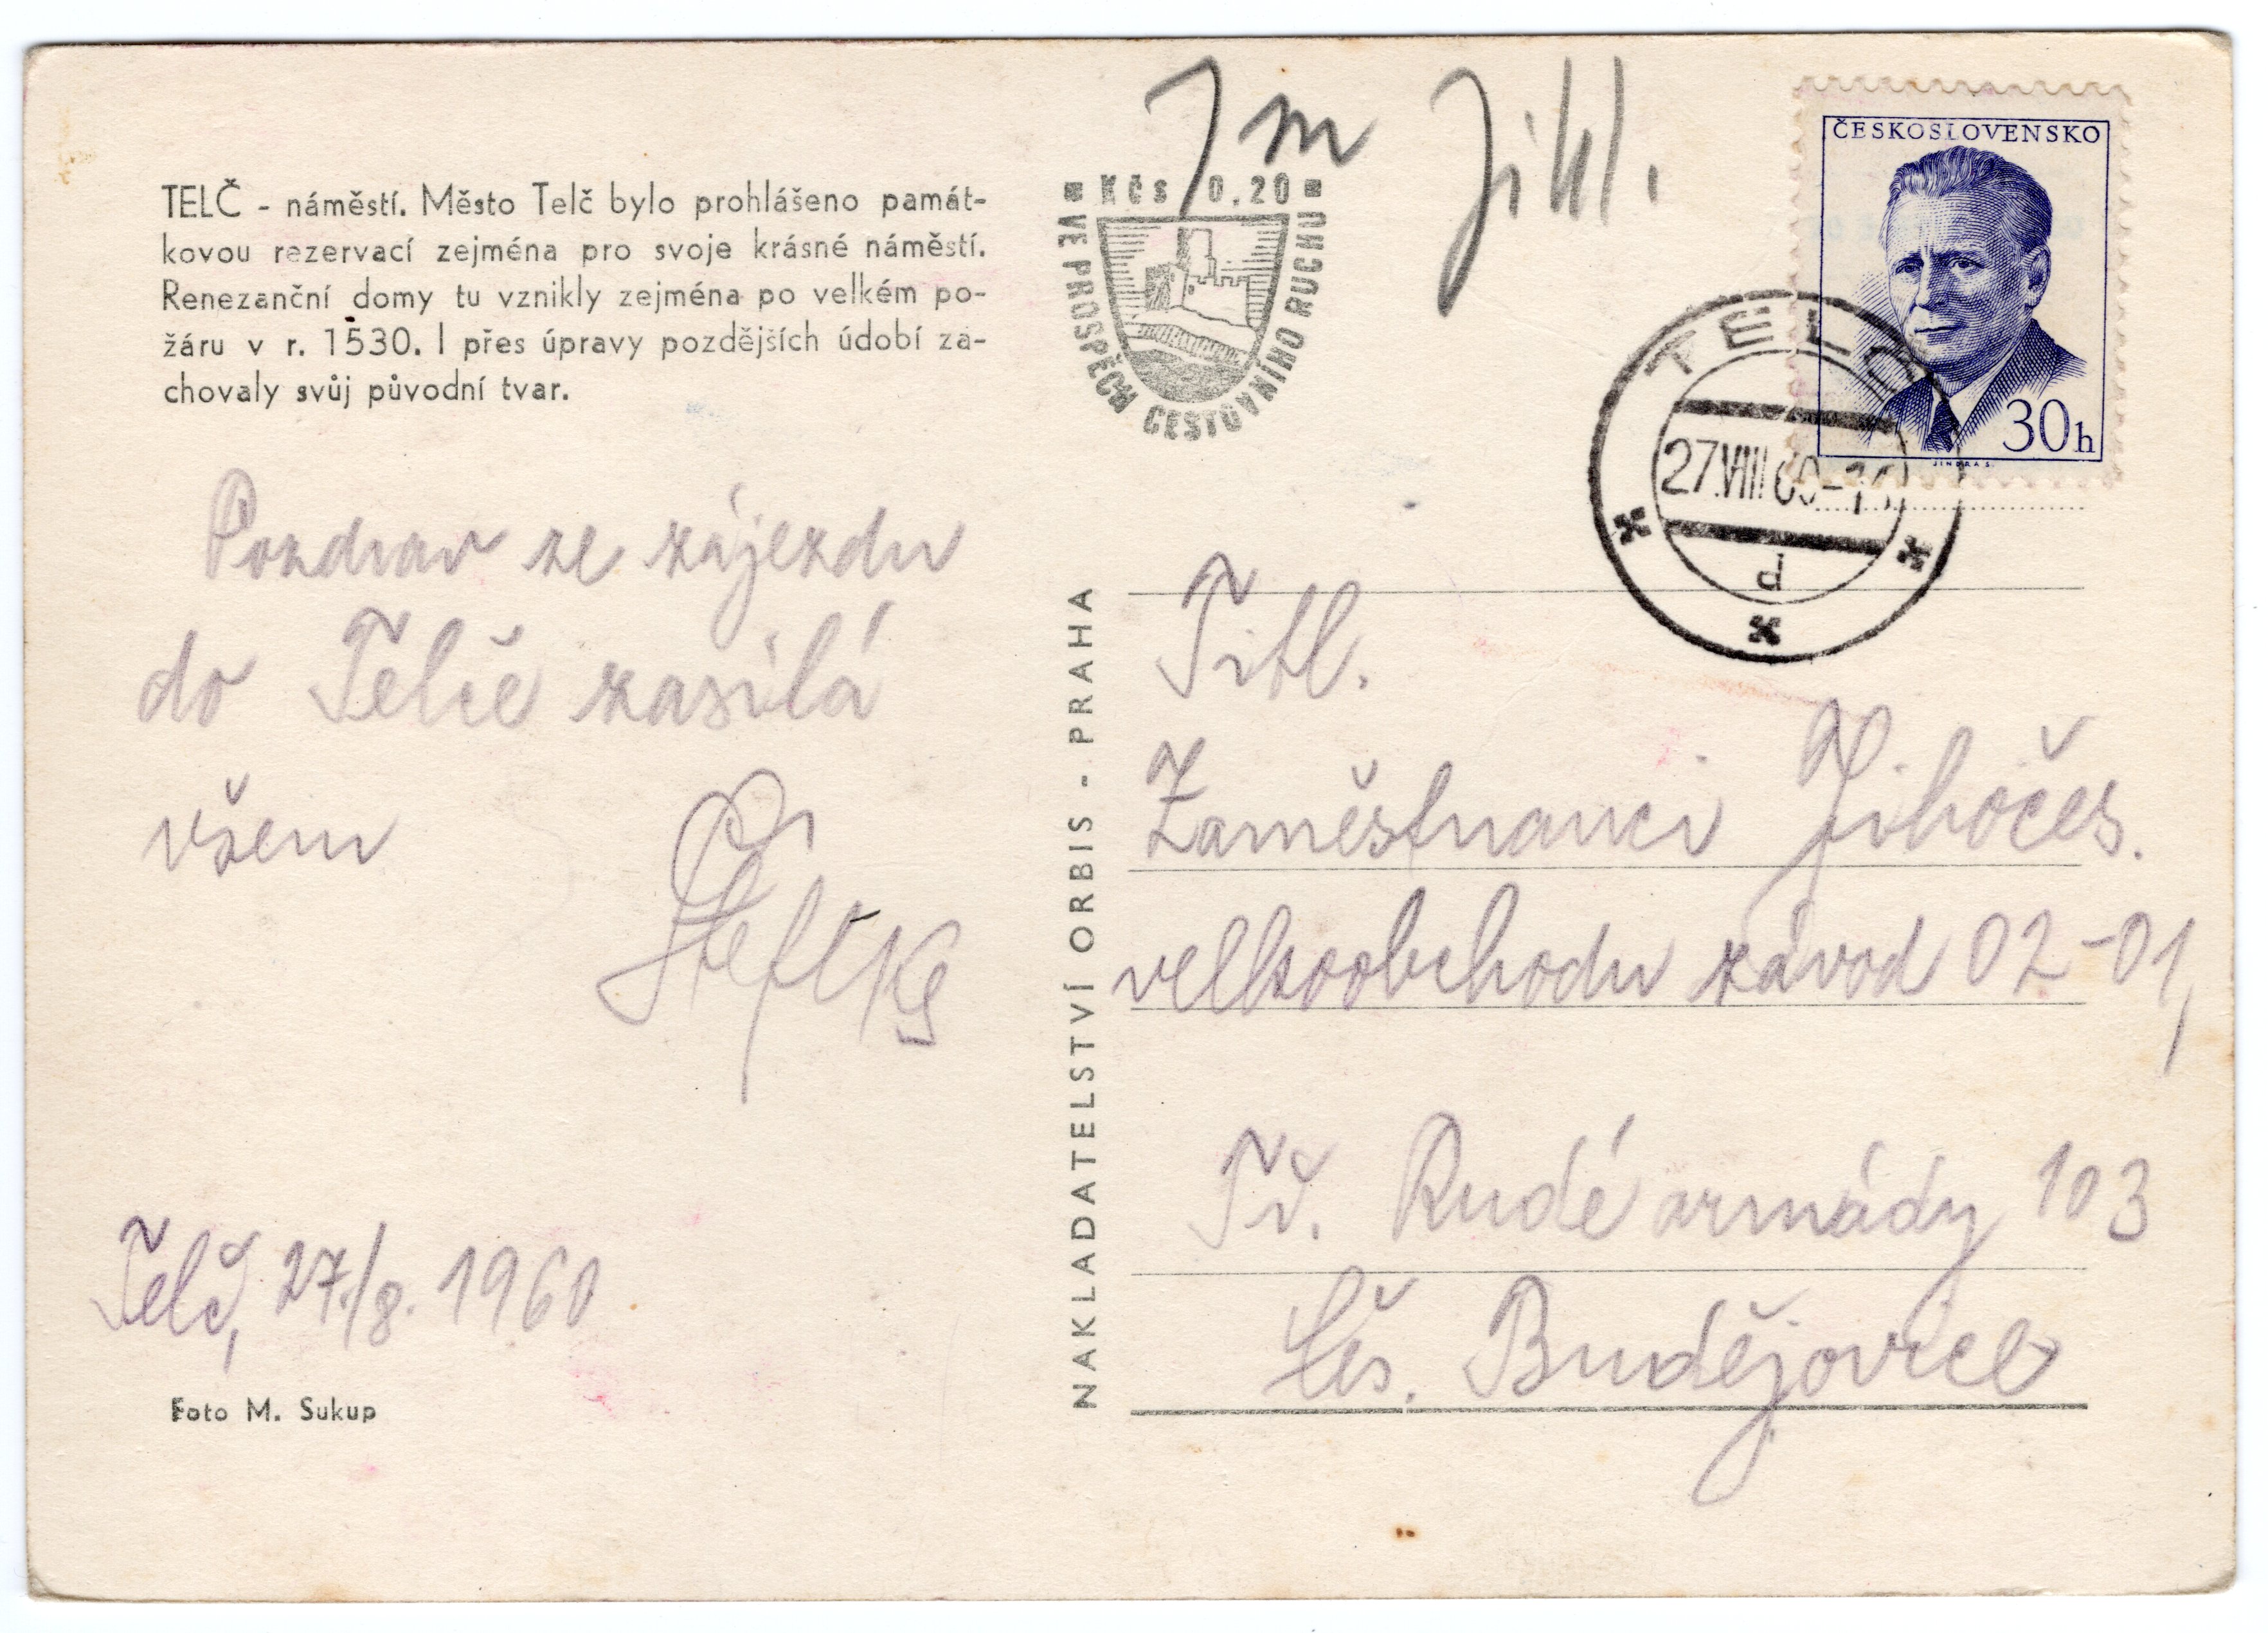 TELČ - náměstí. Město Telč bylo prohlášeno památ-
kovou rezervací zejména pro svoje krásné náměstí.
Renezanční domy tu vznikly zejména po velkém po-
žáru v r. 1530. I přes úpravy pozdějších údobí za-
chovaly svůj původní tvar.
Pozdrav ze zájezdu
do Telče zasílá
všem
Telč, 27./8. 1960
Foto M. Sukup
NAKLADATELSTVÍ ORBIS - PRAHA
Kčs 0,20
VE PROSPĚCH CESTOVNÍHO RUCHU
ČESKOSLOVENSKO
30h
JINDRA S.
TELČ
27.VIII 60-
d
Titl.
Zaměstnanci Jihočes.
velkoobchodu závod 02-01,
Tř. Rudé armády 103
Čes. Budějovice